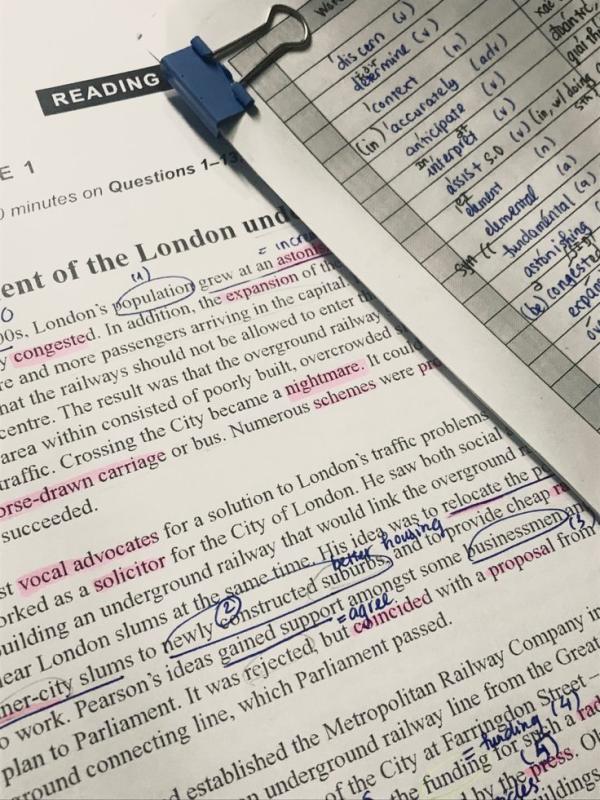 READING
E 1
minutes on Questions 1–13
ent of the London und
(1) = incre
00s, London's population grew at an astonis
y congested. In addition, the expansion of the
re and more passengers arriving in the capital.
hat the railways should not be allowed to enter th
centre. The result was that the overground railway
area within consisted of poorly built, overcrowded s
traffic. Crossing the City became a nightmare. It could
orse-drawn carriage or bus. Numerous schemes were pro
succeeded.
st vocal advocates for a solution to London's traffic problems
orked as a solicitor for the City of London. He saw both social
uilding an underground railway that would link the overground
lear London slums at the same time. His idea was to relocate the po
better housing
ner-city slums to newly constructed suburbs, and to provide cheap ra
(2) = agree (3)
o work. Pearson's ideas gained support amongst some businessmen an
plan to Parliament. It was rejected, but coincided with a proposal from
ground connecting line, which Parliament passed.
d established the Metropolitan Railway Company in
an underground railway line from the Great
of the City at Farringdon Street –
= funding (4)
the funding for such a rad
(5)
by the press. Ob
buildings
discern (v)
determine (v)
context (n)
(in) accurately (adv)
anticipate (v)
interpret (v)
assist s.o (v) (in, w/ doing sth
element (n)
elemental (a)
syn fundamental (a)
astonishing
(be) congested
expan